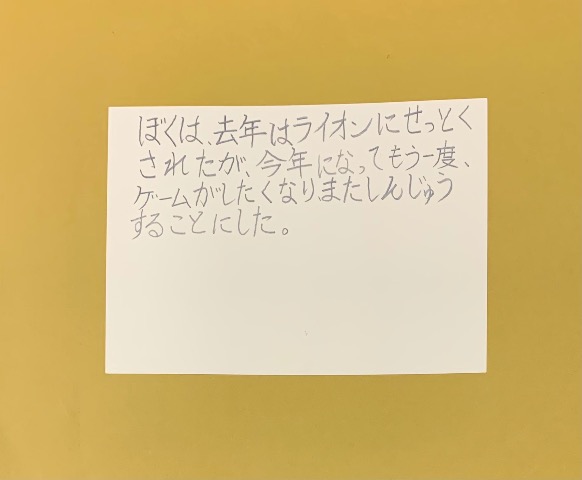 ぼくは、去年はライオンにせっとく
されたが、今年になってもう一度、
ゲームがしたくなり、またしんじゅう
することにした。